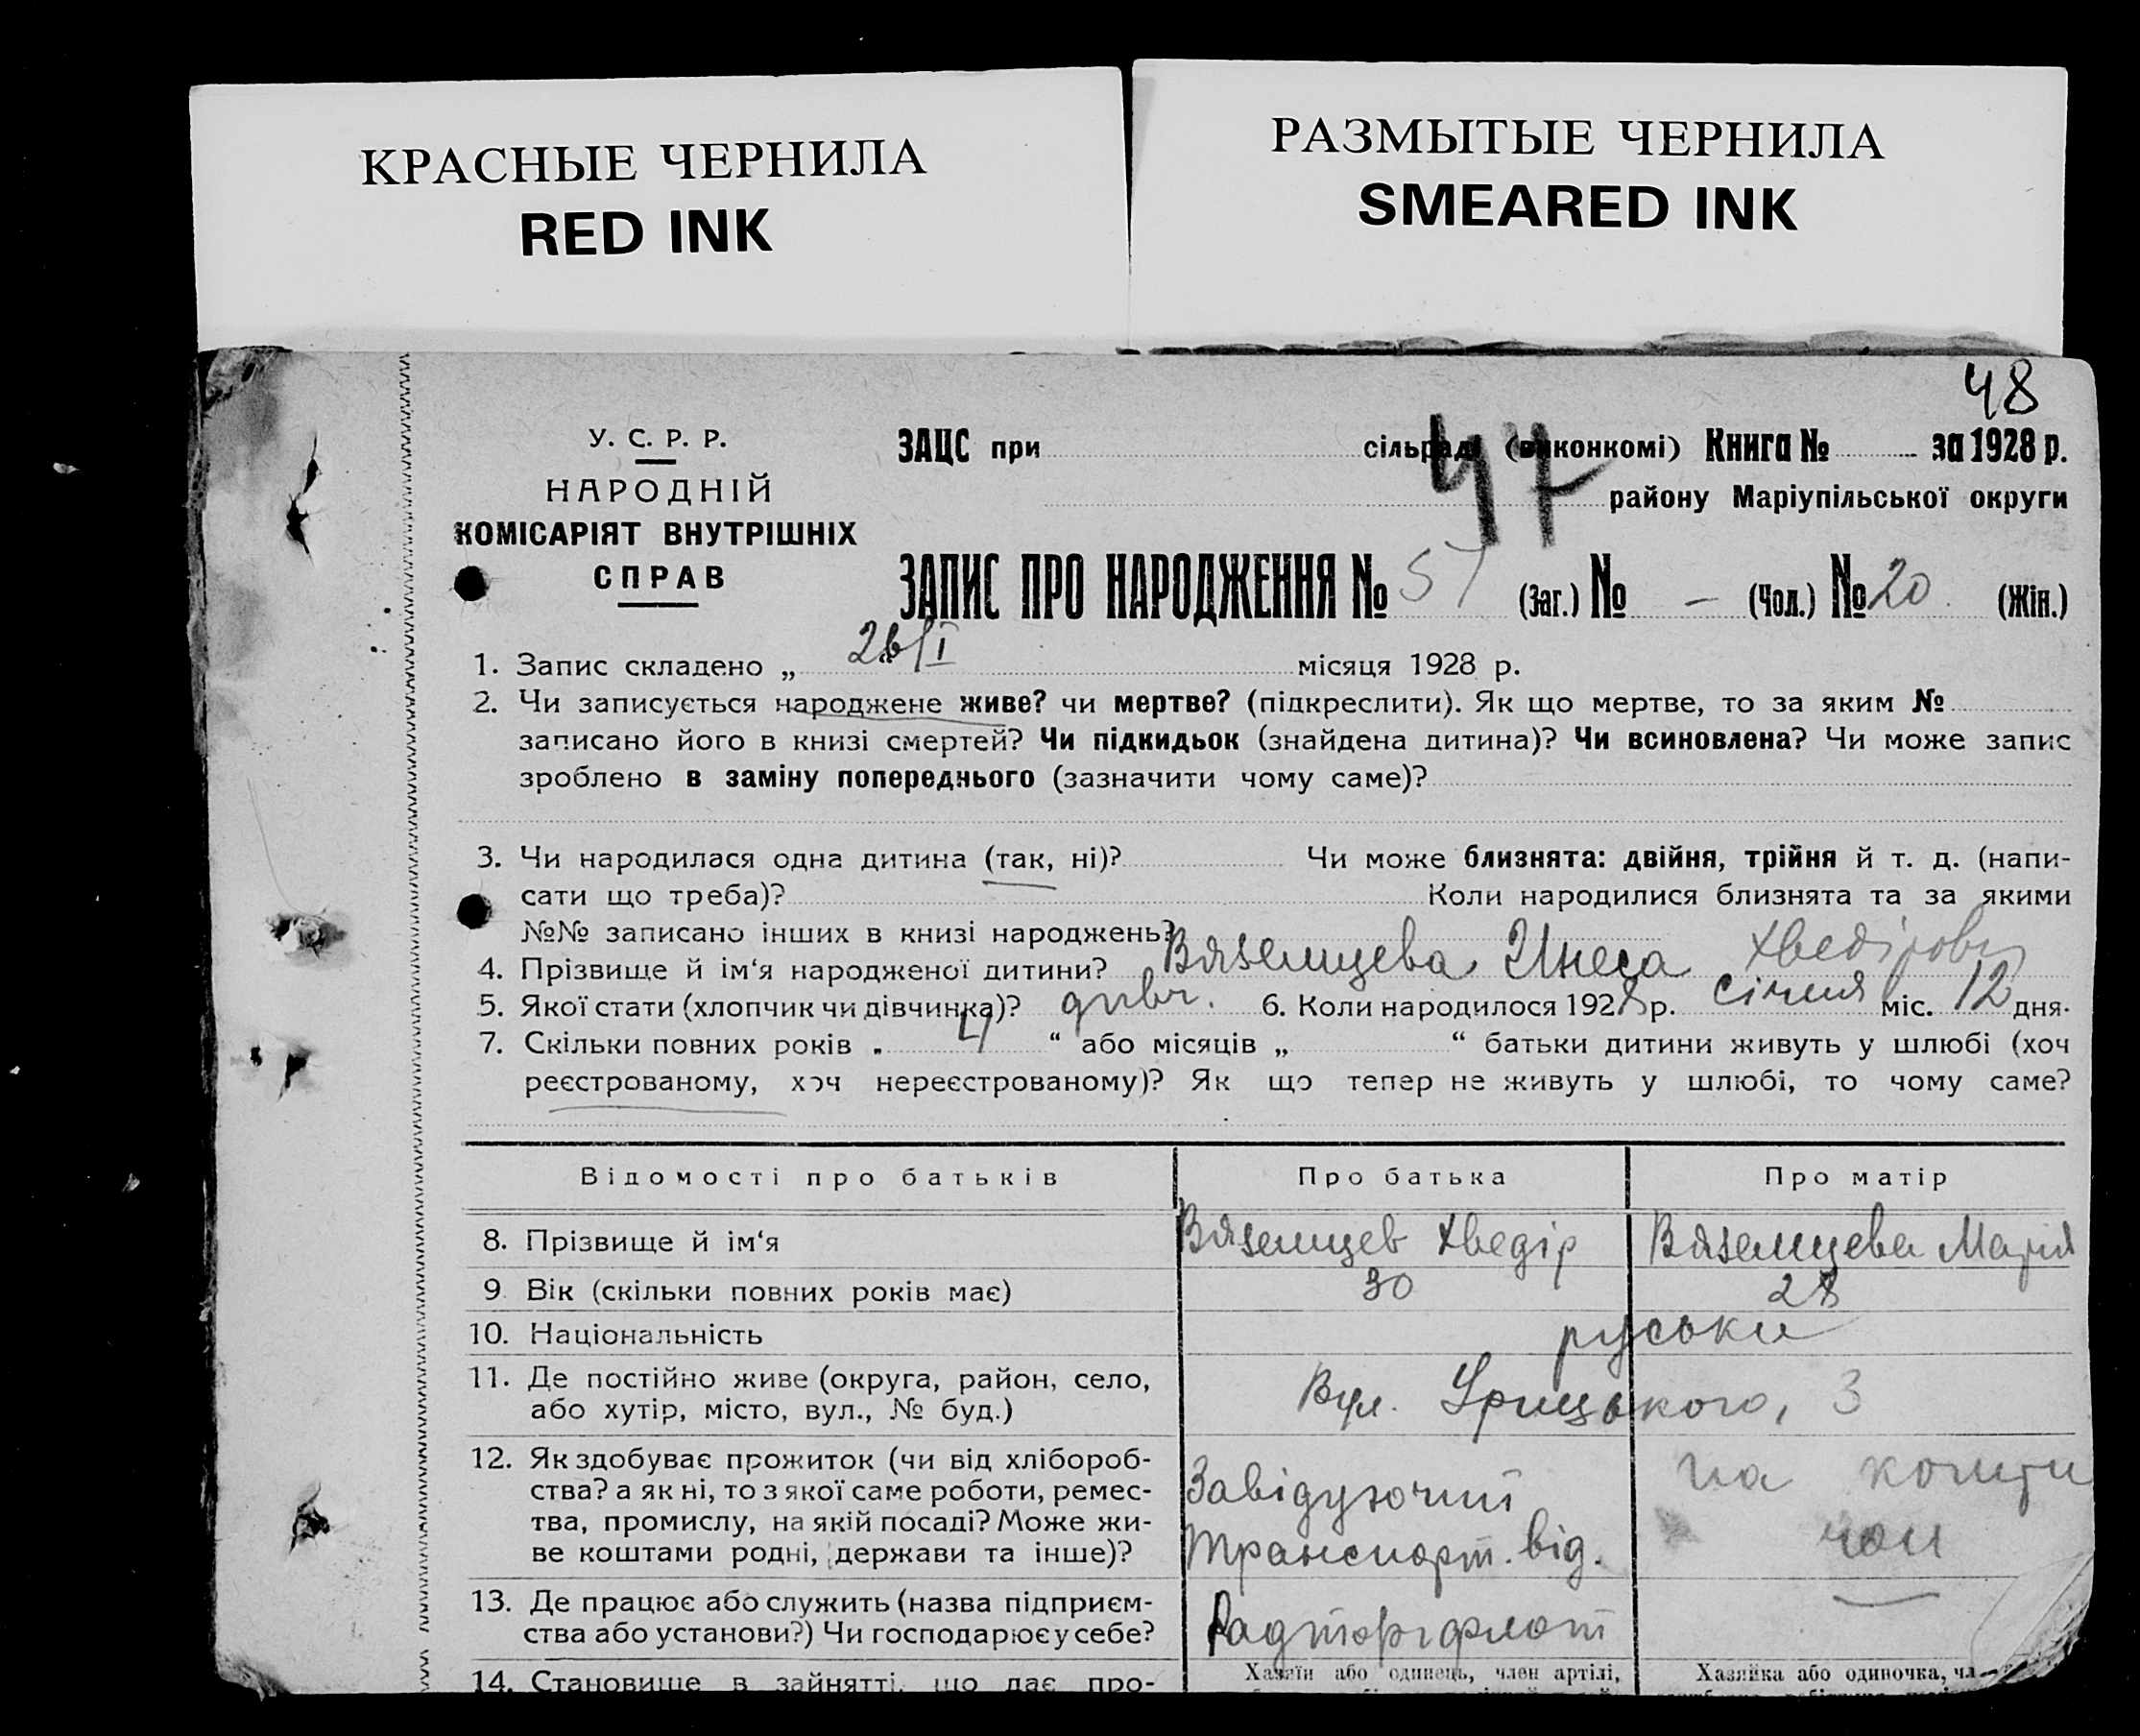 КРАСНЫЕ ЧЕРНИЛА
RED INK
РАЗМЫТЫЕ ЧЕРНИЛА
SMEARED INK
48
47
У. С. Р. Р.
НАРОДНІЙ
КОМІСАРІЯТ ВНУТРІШНІХ
СПРАВ
ЗАЦС при сільраді (виконкомі) Книга № за 1928 р.
району Маріупільської округи
ЗАПИС ПРО НАРОДЖЕННЯ № 57 (Заг.) № – (Чол.) № 20 (Жін.)
1. Запис складено „ 26/I місяця 1928 р.
2. Чи записується народжене живе? чи мертве? (підкреслити). Як що мертве, то за яким №
записано його в книзі смертей? Чи підкидьок (знайдена дитина)? Чи всиновлена? Чи може запис
зроблено в заміну попереднього (зазначити чому саме)?
3. Чи народилася одна дитина (так, ні)? Чи може близнята: двійня, трійня й т. д. (напи-
сати що треба)? Коли народилися близнята та за якими
№№ записано інших в книзі народжень?
4. Прізвище й ім‘я народженої дитини? Вяземцева Инеса Хведіровн
5. Якої статі (хлопчик чи дівчинка)? 6. Коли народилося 1928 р. січня міс. 12 дня.
7. Скільки повних років „ 4 “ або місяців „ “ батьки дитини живуть у шлюбі (хоч
реєстрованому, хоч нереєстрованому)? Як що тепер не живуть у шлюбі, то чому саме?
Відомості про батьків Про батька Про матір
8. Прізвище й ім‘я Вяземцев Хведір Вяземцева Марія
9. Вік (скільки повних років має) 30 28
10. Національність руськи
11. Де постійно живе (округа, район, село,
або хутір, місто, вул., № буд.) Вул. Урицького, 3
12. Як здобуває прожиток (чи від хлібороб-
ства? а як ні, то з якої саме роботи, ремес-
тва, промислу, на якій посаді? Може жи-
ве коштами родні, держави та інше)?
Завідуючий
транспорт. від.
на кошти
чол
13. Де працює або служить (назва підприєм-
ства або установи?) Чи господарює у себе?
Радторгфлот –
14. Становище в зайнятті, що дає про-
Хазяїн або одинець, член артілі,
Хазяйка або одиночка, чл